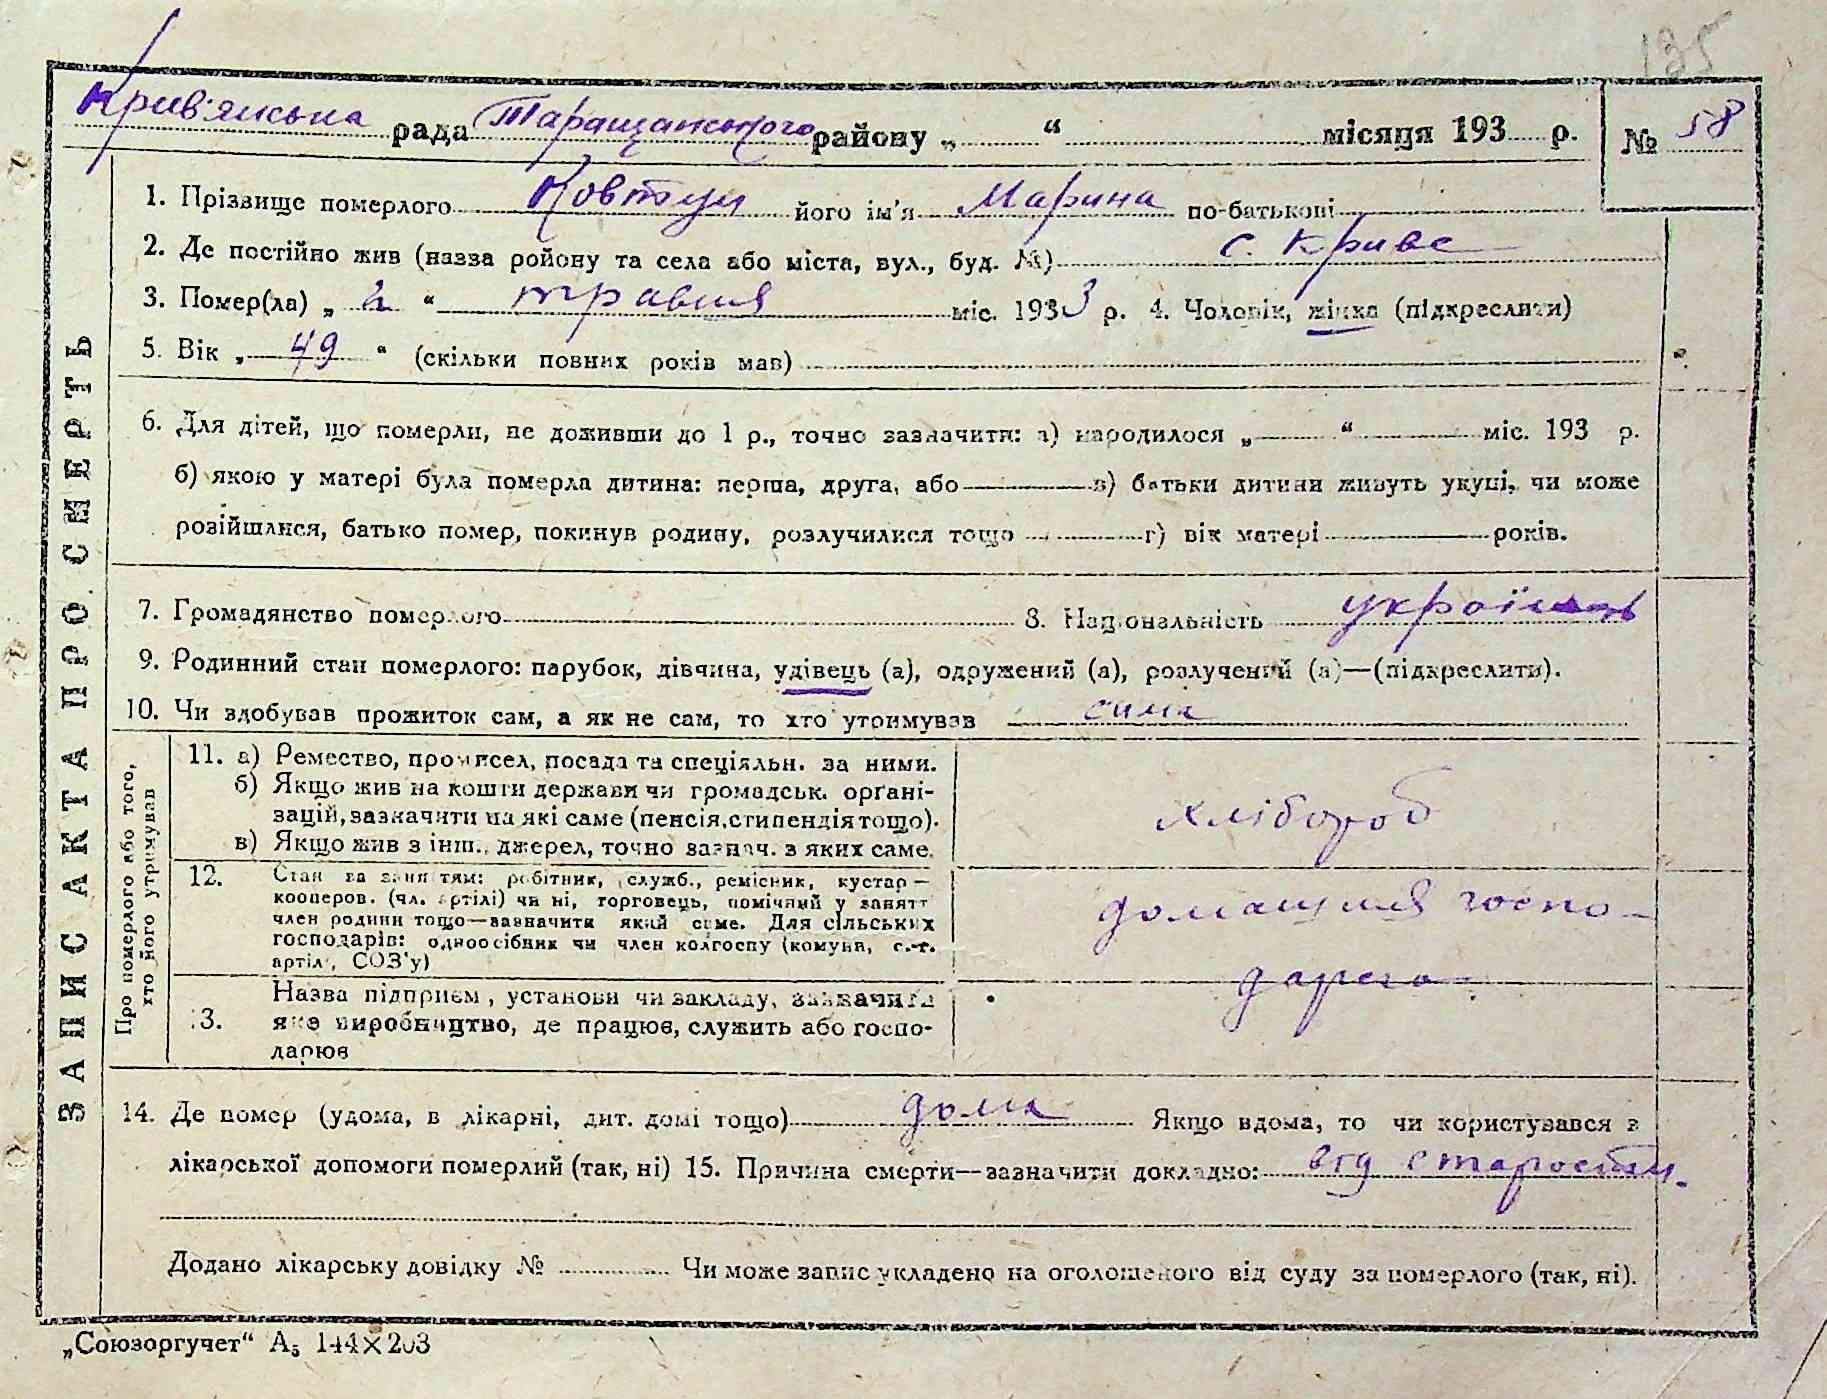 135
Крив'янська рада Таращанського району „ “ місяця 193 р. № 58
ЗАПИС АКТА ПРО СМЕРТЬ
1. Прізвище померлого Ковтун його ім'я Марина по-батькові
2. Де постійно жив (назва ройону та села або міста, вул., буд. №) с. Криве
3. Помер(ла) „ 2 “ травня міс. 1933 р. 4. Чоловік, жінка (підкреслити)
5. Вік „ 49 “ (скільки повних років мав)
6. Для дітей, що померли, не доживши до 1 р., точно зазначити: а) народилося „ “ міс. 193 р.
б) якою у матері була померла дитина: перша, друга, або в) батьки дитини живуть укупі, чи може
розійшлися, батько помер, покинув родину, розлучилися тощо г) вік матері років.
7. Громадянство померлого 8. Національність
9. Родинний стан померлого: парубок, дівчина, удівець (а), одружений (а), розлучений (а)—(підкреслити).
10. Чи здобував прожиток сам, а як не сам, то хто утримував сама
Про померлого або того,
хто його утримував
11. а) Ремество, промисел, посада та спеціяльн. за ними.
б) Якщо жив на кошти держави чи громадськ. органі-
зацій, зазначити на які саме (пенсія, стипендія тощо).
в) Якщо жив з інш. джерел, точно зазнач. з яких саме.
хлібороб
12. Стан за заняттям: робітник, служб., ремісник, кустар—
кооперов. (чл. артілі) чи ні, торговець, помічний у занятт
член родини тощо—зазначити який саме. Для сільських
господарів: одноосібник чи член колгоспу (комуна, с.-г.
артіл, СОЗ'у)
домашня госпо-
дарка
13. Назва підприєм, установи чи закладу, зазначити
яке виробництво, де працює, служить або госпо-
дарює
14. Де помер (удома, в лікарні, дит. домі тощо) дома Якщо вдома, то чи користувався з
лікарської допомоги померлий (так, ні) 15. Причина смерти—зазначити докладно: від старости.
Додано лікарську довідку № Чи може запис укладено на оголошеного від суду за померлого (так, ні).
„Союзоргучет“ А5 144×203